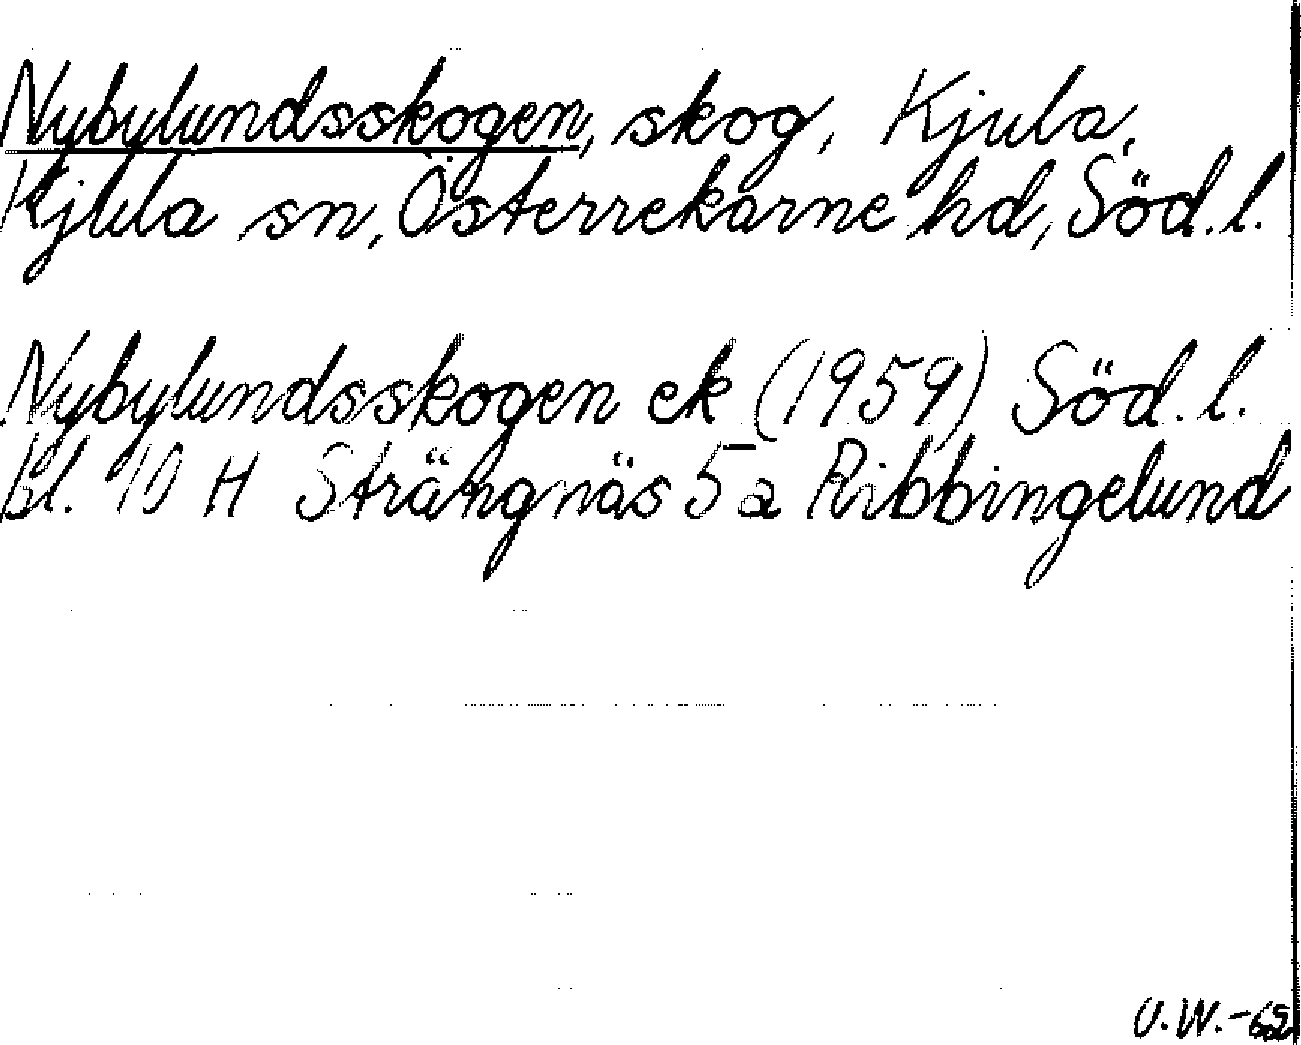 Nybylundsskogen, skog, Kjula,
Kjula sn, Österrekarne hd, Söd.l.
Nybylundsskogen ek (1959) Söd.l.
bl. 10 H Strängnäs 5 a Ribbingelund
U.W.-62